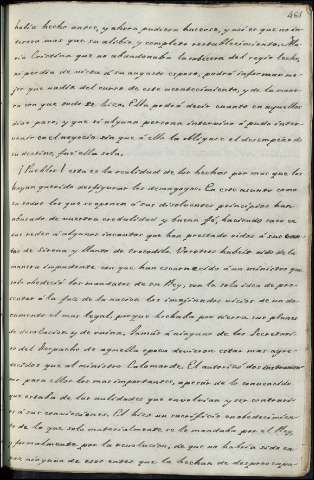 461
habia hecho antes, y ahora pudiera hacerse, y así es que no
mas que su alivio, y completo restablecimiento. Ma-
ria Cristina que no abandonaba la cabecera del regio lecho,
ni perdia de vista á su augusto esposo, podrá informar me-
jor que nadie del curso de este acontecimiento, y de la mane-
ra con que todo se hizo. Ella podrá decir cuanto en aquellos
dias paso, y que si alguna persona intervino ó pudo inter-
venir en el negocio sin que á ello la obligase el desempeño de
su destino, fué ella sola.
¡Pueblos! esta es la realidad de los hechos por mas que los
hayan querido desfigurar los demagogos. En este asunto como
en todos los que se oponen á sus disolventes principios han
abusado de vuestra credulidad y buena fé, haciendo caer en
sus redes á algunos incautos que han prestado oidos á sus can-
tos de Sirena y llanto de cocodrilo. Vosotros habeis sido de la
manera impudente con que han escarnecido á un ministro que
solo obedeció los mandatos de su Rey, con la sola idea de pre-
sentar á la faz de la nacion los imaginados vicios de un do-
cumento el mas legal, porque echaba por tierra sus planes
de desolacion y de ruina. Jamás á ninguno de los Secretarios
del Despacho de aquella epoca devieron estar mas agra-
decidos que al ministro Calomarde. El autorizó dos
para ellos los mas importantes, apesar de lo convencido
que estaba de las nulidades que envolvian y ser contrarios
á sus convicciones. El hizo un sacrificio en obedecimien-
to de lo que solo materialmente se le mandaba por el Rey,
y formalmente por la revolucion, de que no habria sido ca-
paz ninguno de esos entes que la hechan de despreocupa-